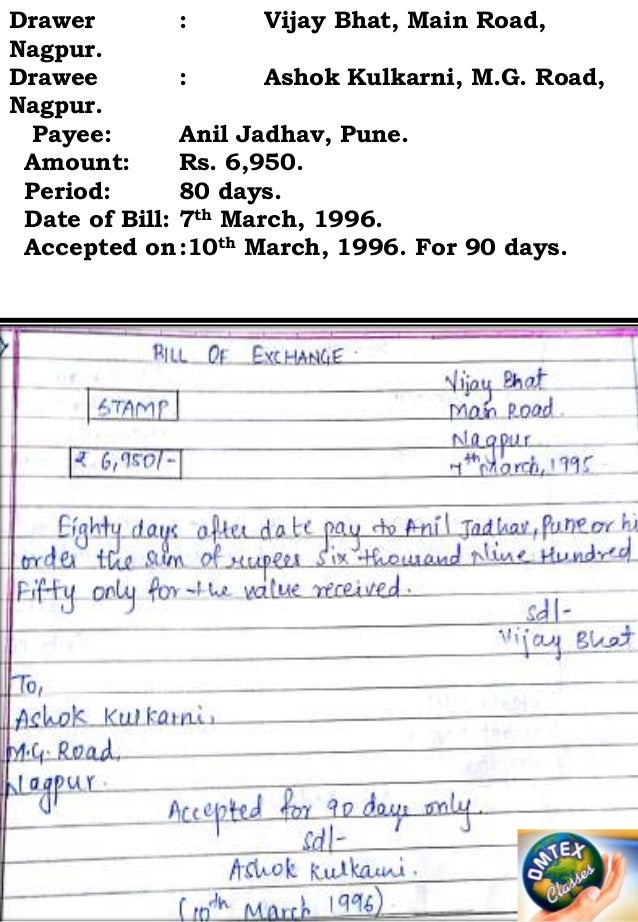 Drawer : Vijay Bhat, Main Road,
Nagpur.
Drawee : Ashok Kulkarni, M.G. Road,
Nagpur.
Payee: Anil Jadhav, Pune.
Amount: Rs. 6,950.
Period: 80 days.
Date of Bill: 7th March, 1996.
Accepted on:10th March, 1996. For 90 days.
BILL OF EXCHANGE.
Vijay Bhat
STAMP
Main Road.
Nagpur
₹ 6,950/-
7th March, 1995
Eighty days after date pay to Anil Jadhav, Pune or hi
order the sum of rupees Six thousand Nine Hundred
Fifty only for the value received.
sd/-
Vijay Bhat
To,
Ashok Kulkarni,
M.G. Road,
Nagpur.
Accepted for 90 days only.
sd/-
Ashok Kulkarni.
(10th March 1996)
DMTEX
Classes